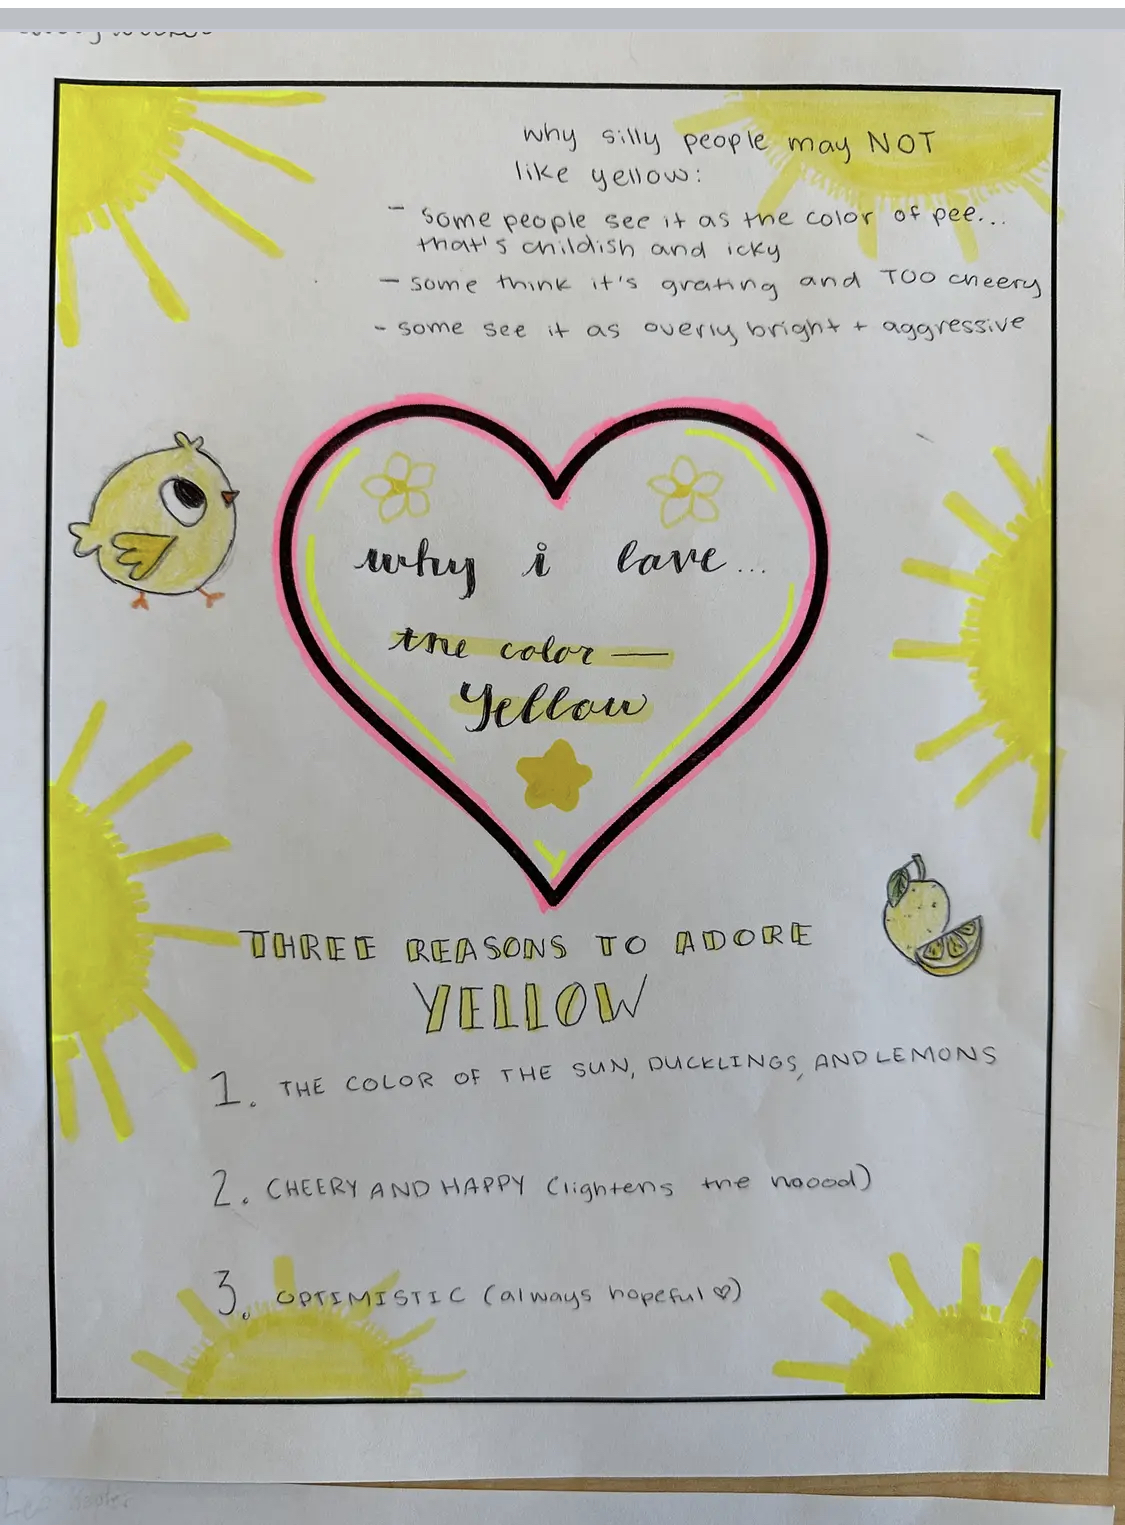 why silly people may NOT
like yellow:
- some people see it as the color of pee...
that's childish and icky
- some think it's grating and TOO cheery
- some see it as overly bright + aggressive
why i love...
the color —
Yellow
THREE REASONS TO ADORE
YELLOW
1. THE COLOR OF THE SUN, DUCKLINGS, AND LEMONS
2. CHEERY AND HAPPY (lightens the moood)
3. OPTIMISTIC (always hopeful ♡)